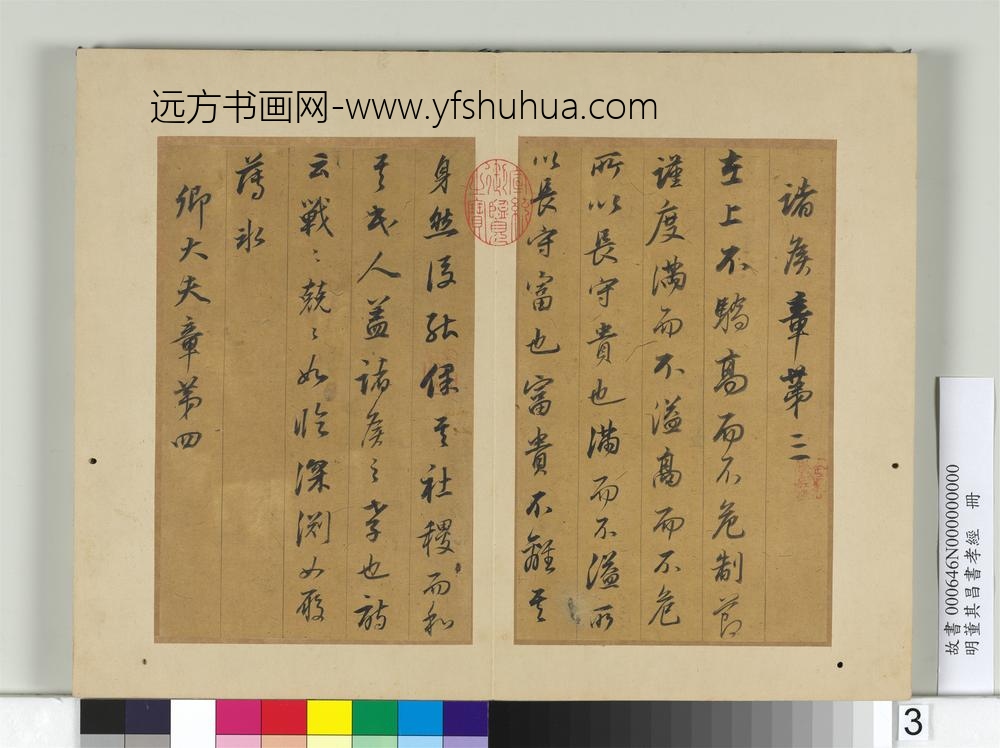 远方书画网-www.yfshuhua.com
諸侯章第三
在上不驕高而不危制節
謹度滿而不溢高而不危
所以長守貴也滿而不溢所
以長守富也富貴不離其
身然後能保其社稷而和
其民人蓋諸侯之孝也詩
云戰〻兢〻如臨深淵如履
薄冰
卿大夫章第四
故書 000646N000000000
明董其昌書孝經 冊
3